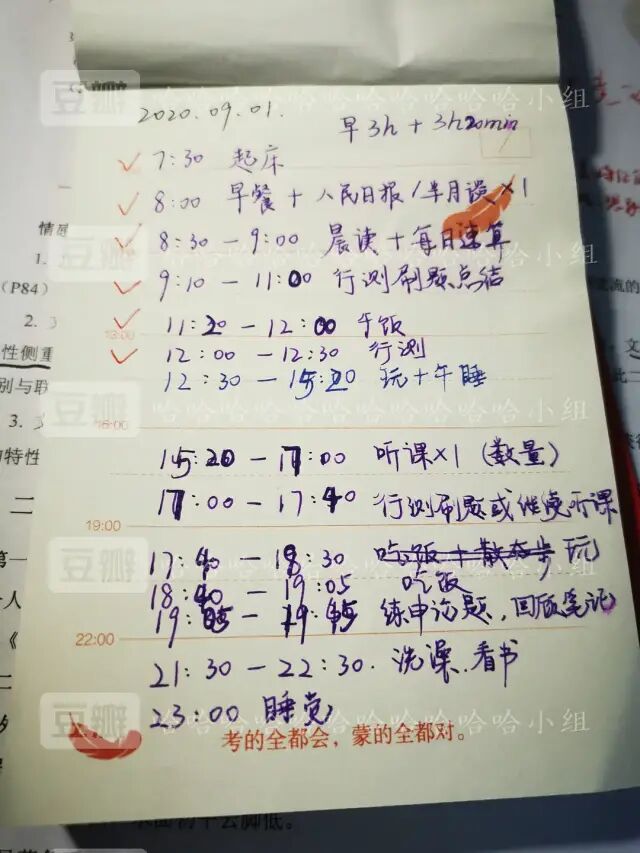 2020.09.01.
早3h + 3h20min
7:30 起床
8:00 早餐 + 人民日报/半月谈 ×1
8:30 - 9:00 晨读 + 每日速算
9:10 - 11:00 行测刷题总结
11:20 - 12:00 午饭
13:00
12:00 - 12:30 行测
12:30 - 15:20 玩+午睡
16:00
15:20 - 17:00 听课×1 (数量)
17:00 - 17:40 行测刷题或继续听课
19:00
17:40 - 18:30 吃饭+散步 玩
18:40 - 19:05 吃饭
练申论题,回顾笔记
22:00
21:30 - 22:30. 洗澡.看书
23:00 睡觉
考的全都会,蒙的全都对。
豆瓣
哈哈哈哈哈哈哈小组
情感
1.
(P84)
2.
性侧重
别与联
3.
的特性
二
第一
《